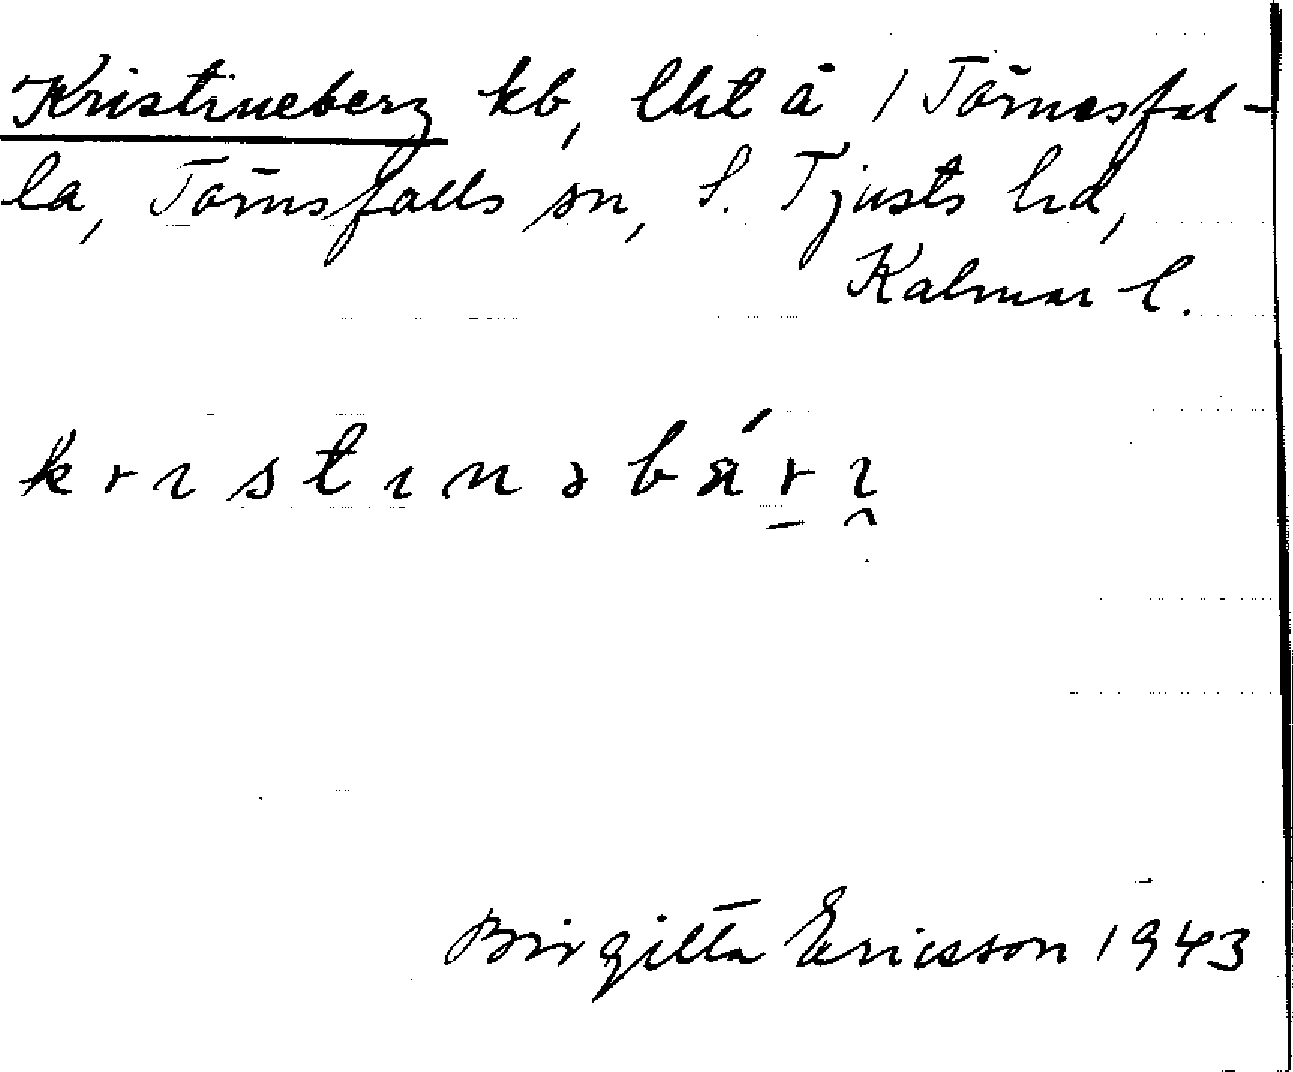 Kristineberg kb, lht å 1 Törnesfal-
la, Törnsfalls sn, S. Tjusts hd,
Kalmar l.
kristinəbä́r̠ı̯
Birgitta Ericsson 1943